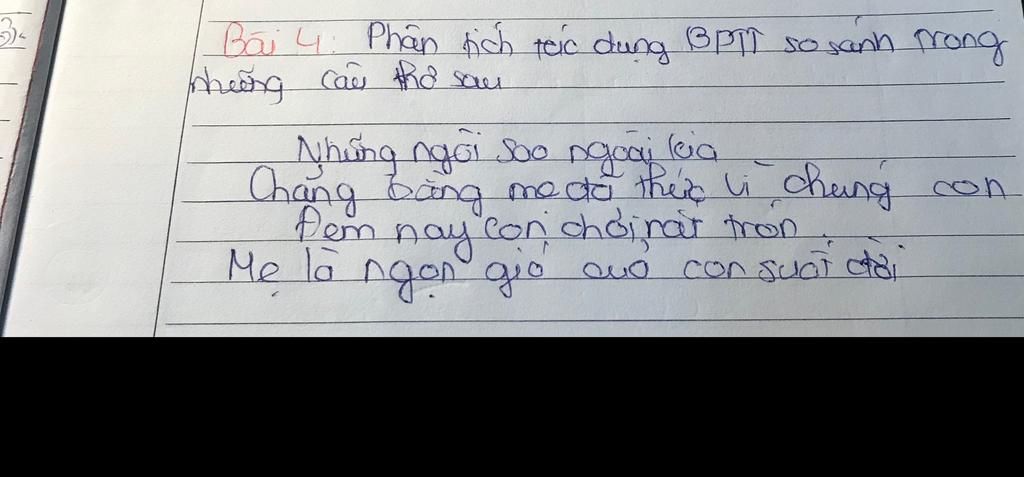 Bài 4: Phân tích tác dụng BPTT so sánh trong
những câu thơ sau
Những ngôi sao ngoài kia
Chẳng bằng mẹ đã thức vì chúng con
Đêm nay con ngủ giấc tròn
Mẹ là ngọn gió của con suốt đời